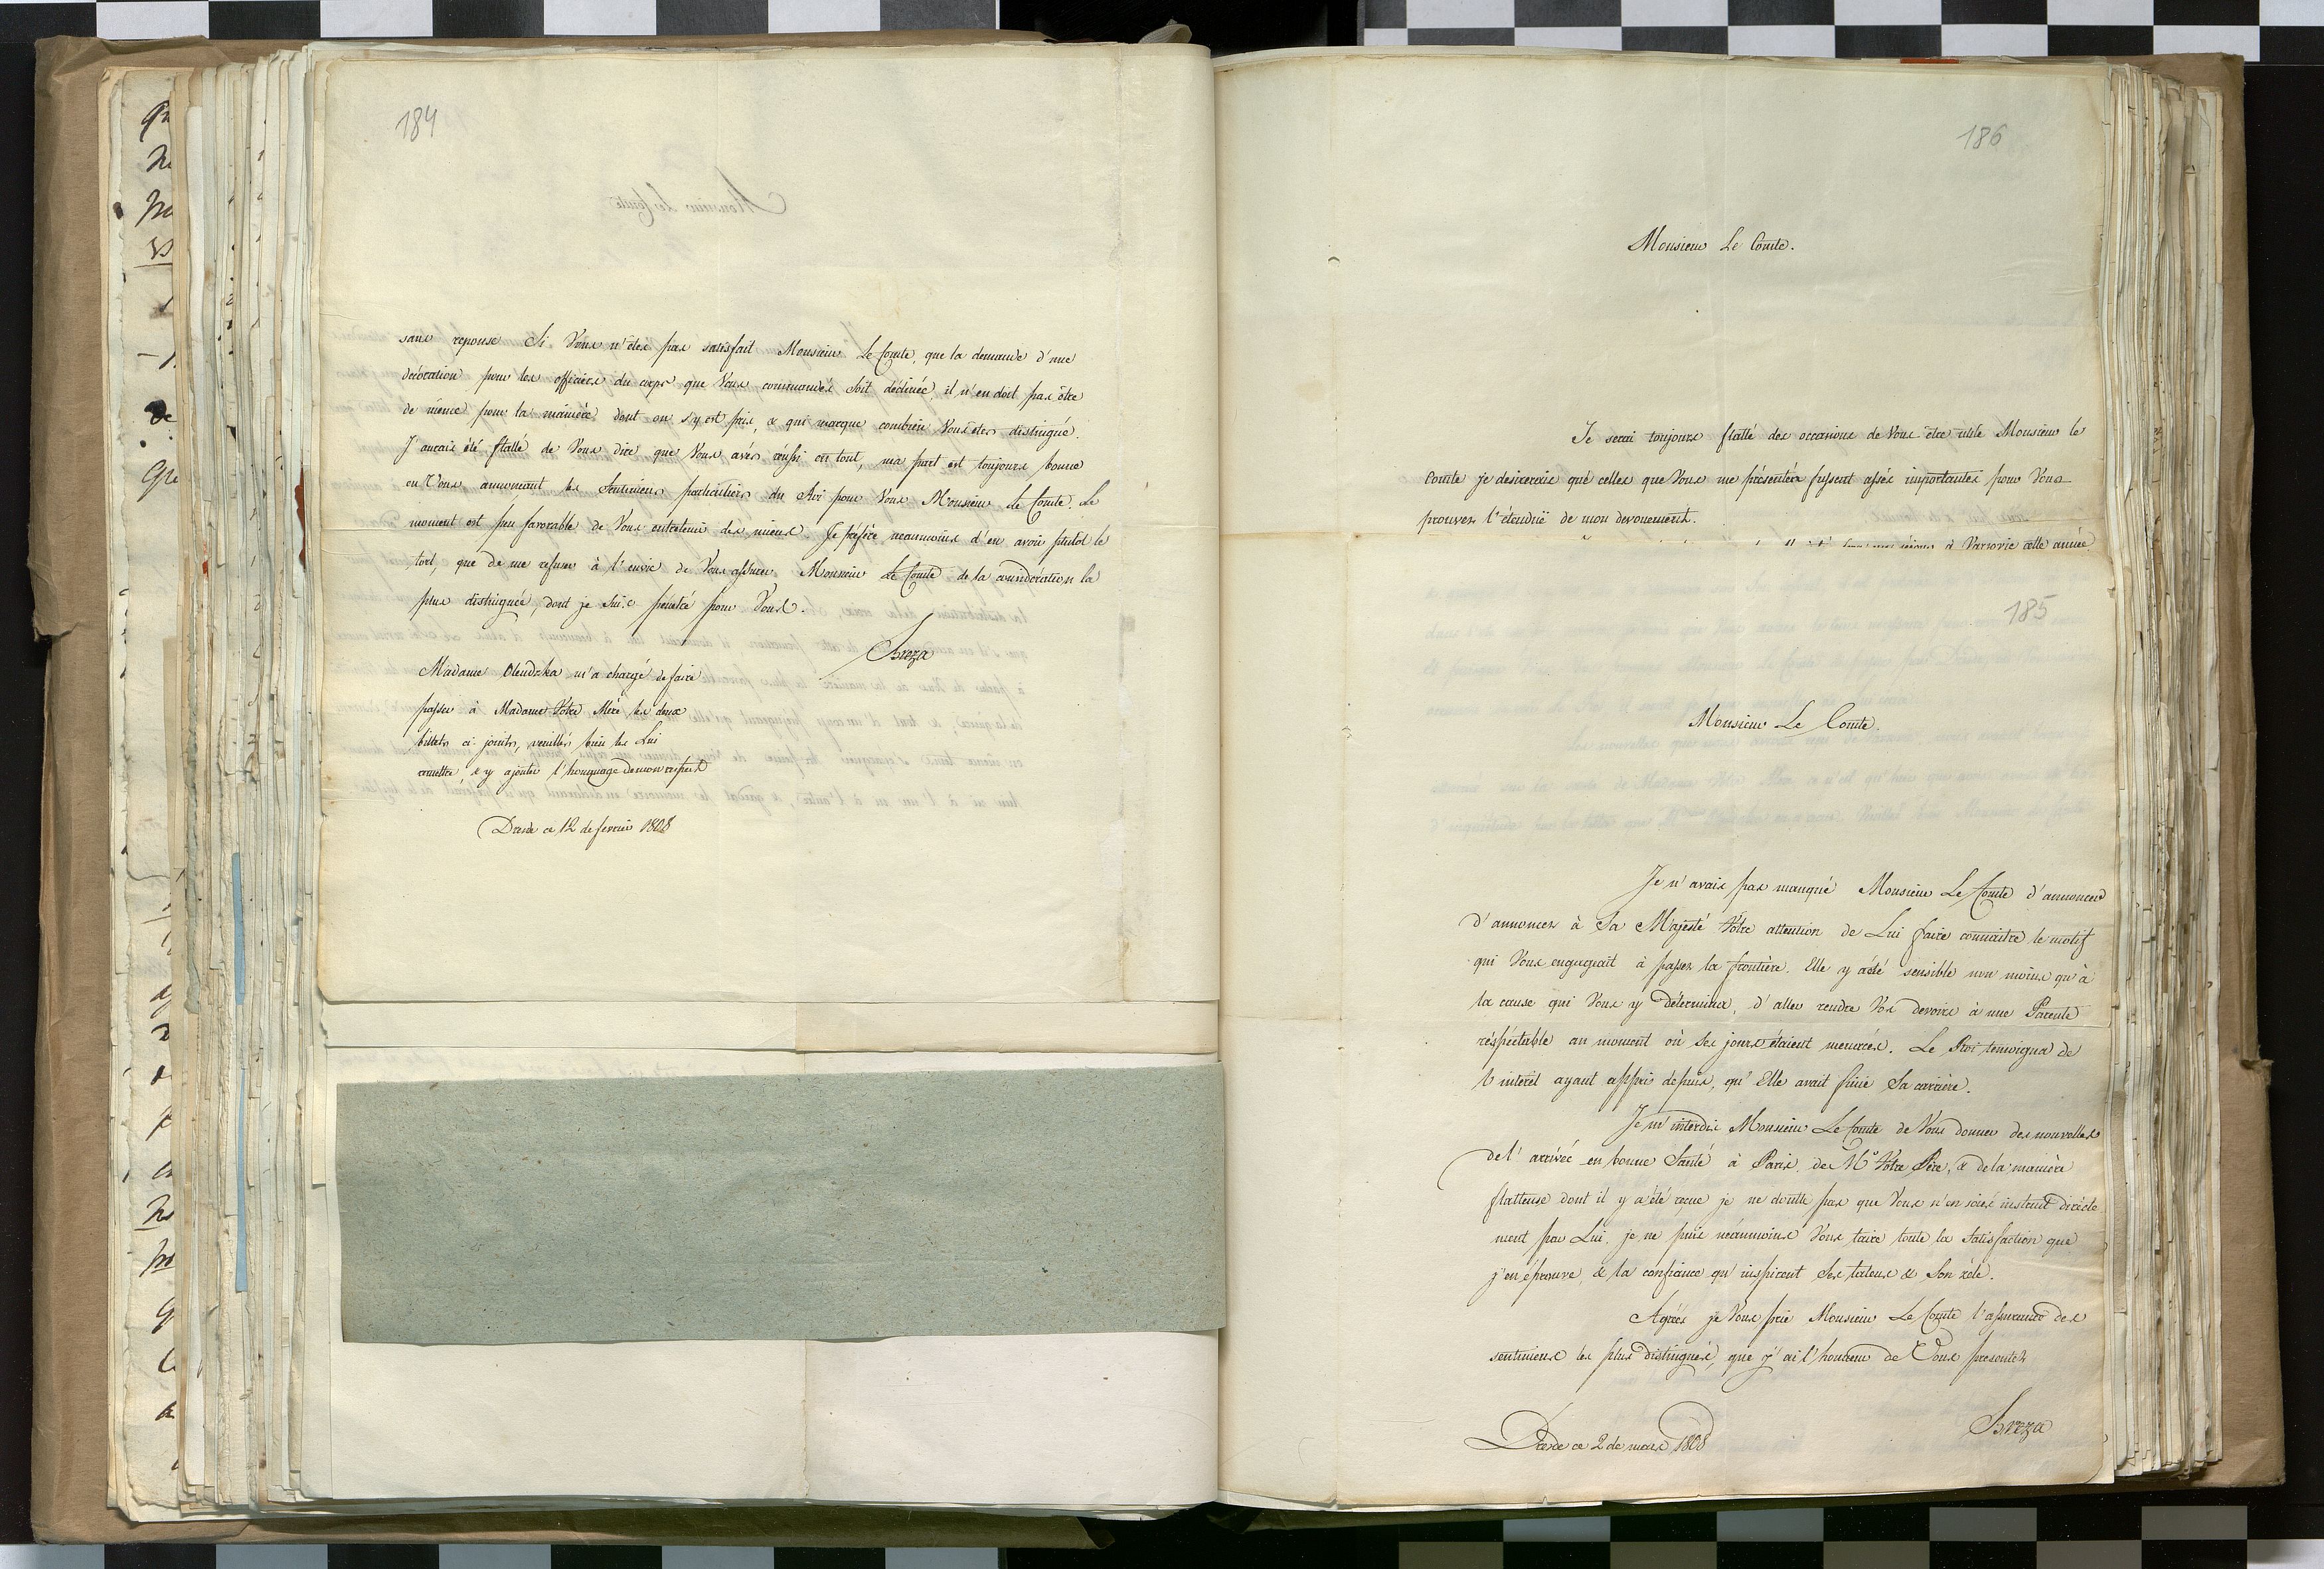 184
sans reponse Si Vous n'êtes pas satisfait Monsieur Le Comte, que la demande d'une
decoration pour les officiers du corps que Vous commandés soit declinée, il n'en doit pas être
de même pour la manière dont on s'y est pris, & qui marque combien Vous êtes distingué.
J'aurais été flatté de Vous dire que Vous avés réussi en tout, ma part est toujours bonne
en Vous annoncant les Sentimens particuliers du Roi pour Vous Monsieur Le Comte. Le
moment est peu favorable de Vous entretenir des miens. Je préfère neanmoins d'en avoir plutot le
tort, que de me refuser à l'envie de Vous assurer Monsieur Le Comte de la considération la
plus distinguée, dont je suis penetré pour Vous.
Breza
Madame Olendzka m'a chargé de faire
passer à Madame Votre Mère les deux
billets ci joints, veuillés bien les Lui
remettre, & y ajouter l'hommage de mon respect
Dresde ce 12 de fevrier 1808
186
Monsieur Le Comte.
Je serai toujours flatté des occasions de Vous être utile Monsieur le
Comte je desirerais que celles que Vous me présentés fussent assés importantes pour Vous
prouver l'étenduë de mon devouement.
à Varsovie cette année
185
Monsieur Le Comte.
Je n'avais pas manqué Monsieur Le Comte d'annoncer
d'annoncer à Sa Majesté Votre attention de Lui faire connaitre le motif
qui Vous engageait à passer la frontière. Elle y a été sensible non moins qu'à
la cause qui Vous y détermina, d'aller rendre Vos devoirs à une Parente
réspéctable au moment où Ses jours étaient menacés. Le Roi temoigna de
l'interêt ayant appris depuis, qu'Elle avait finie Sa carrière.
Je m'interdis Monsieur Le Comte de Vous donner des nouvelles
de l'arrivée en bonne Santé à Paris de Mr Votre Père, & de la manière
flatteuse dont il y a été reçue je ne doutte pas que Vous n'en soiés instruit directe
ment par Lui. je ne puis néanmoins Vous taire toute la Satisfaction que
j'en éprouve & la confiance qu'inspirent Ses talens & Son zèle.
Agrées je Vous prie Monsieur Le Comte l'assurance des
sentimens les plus distingués, que j'ai l'honneur de Vous presenter
Breza
Dresde ce 2 de mars 1808